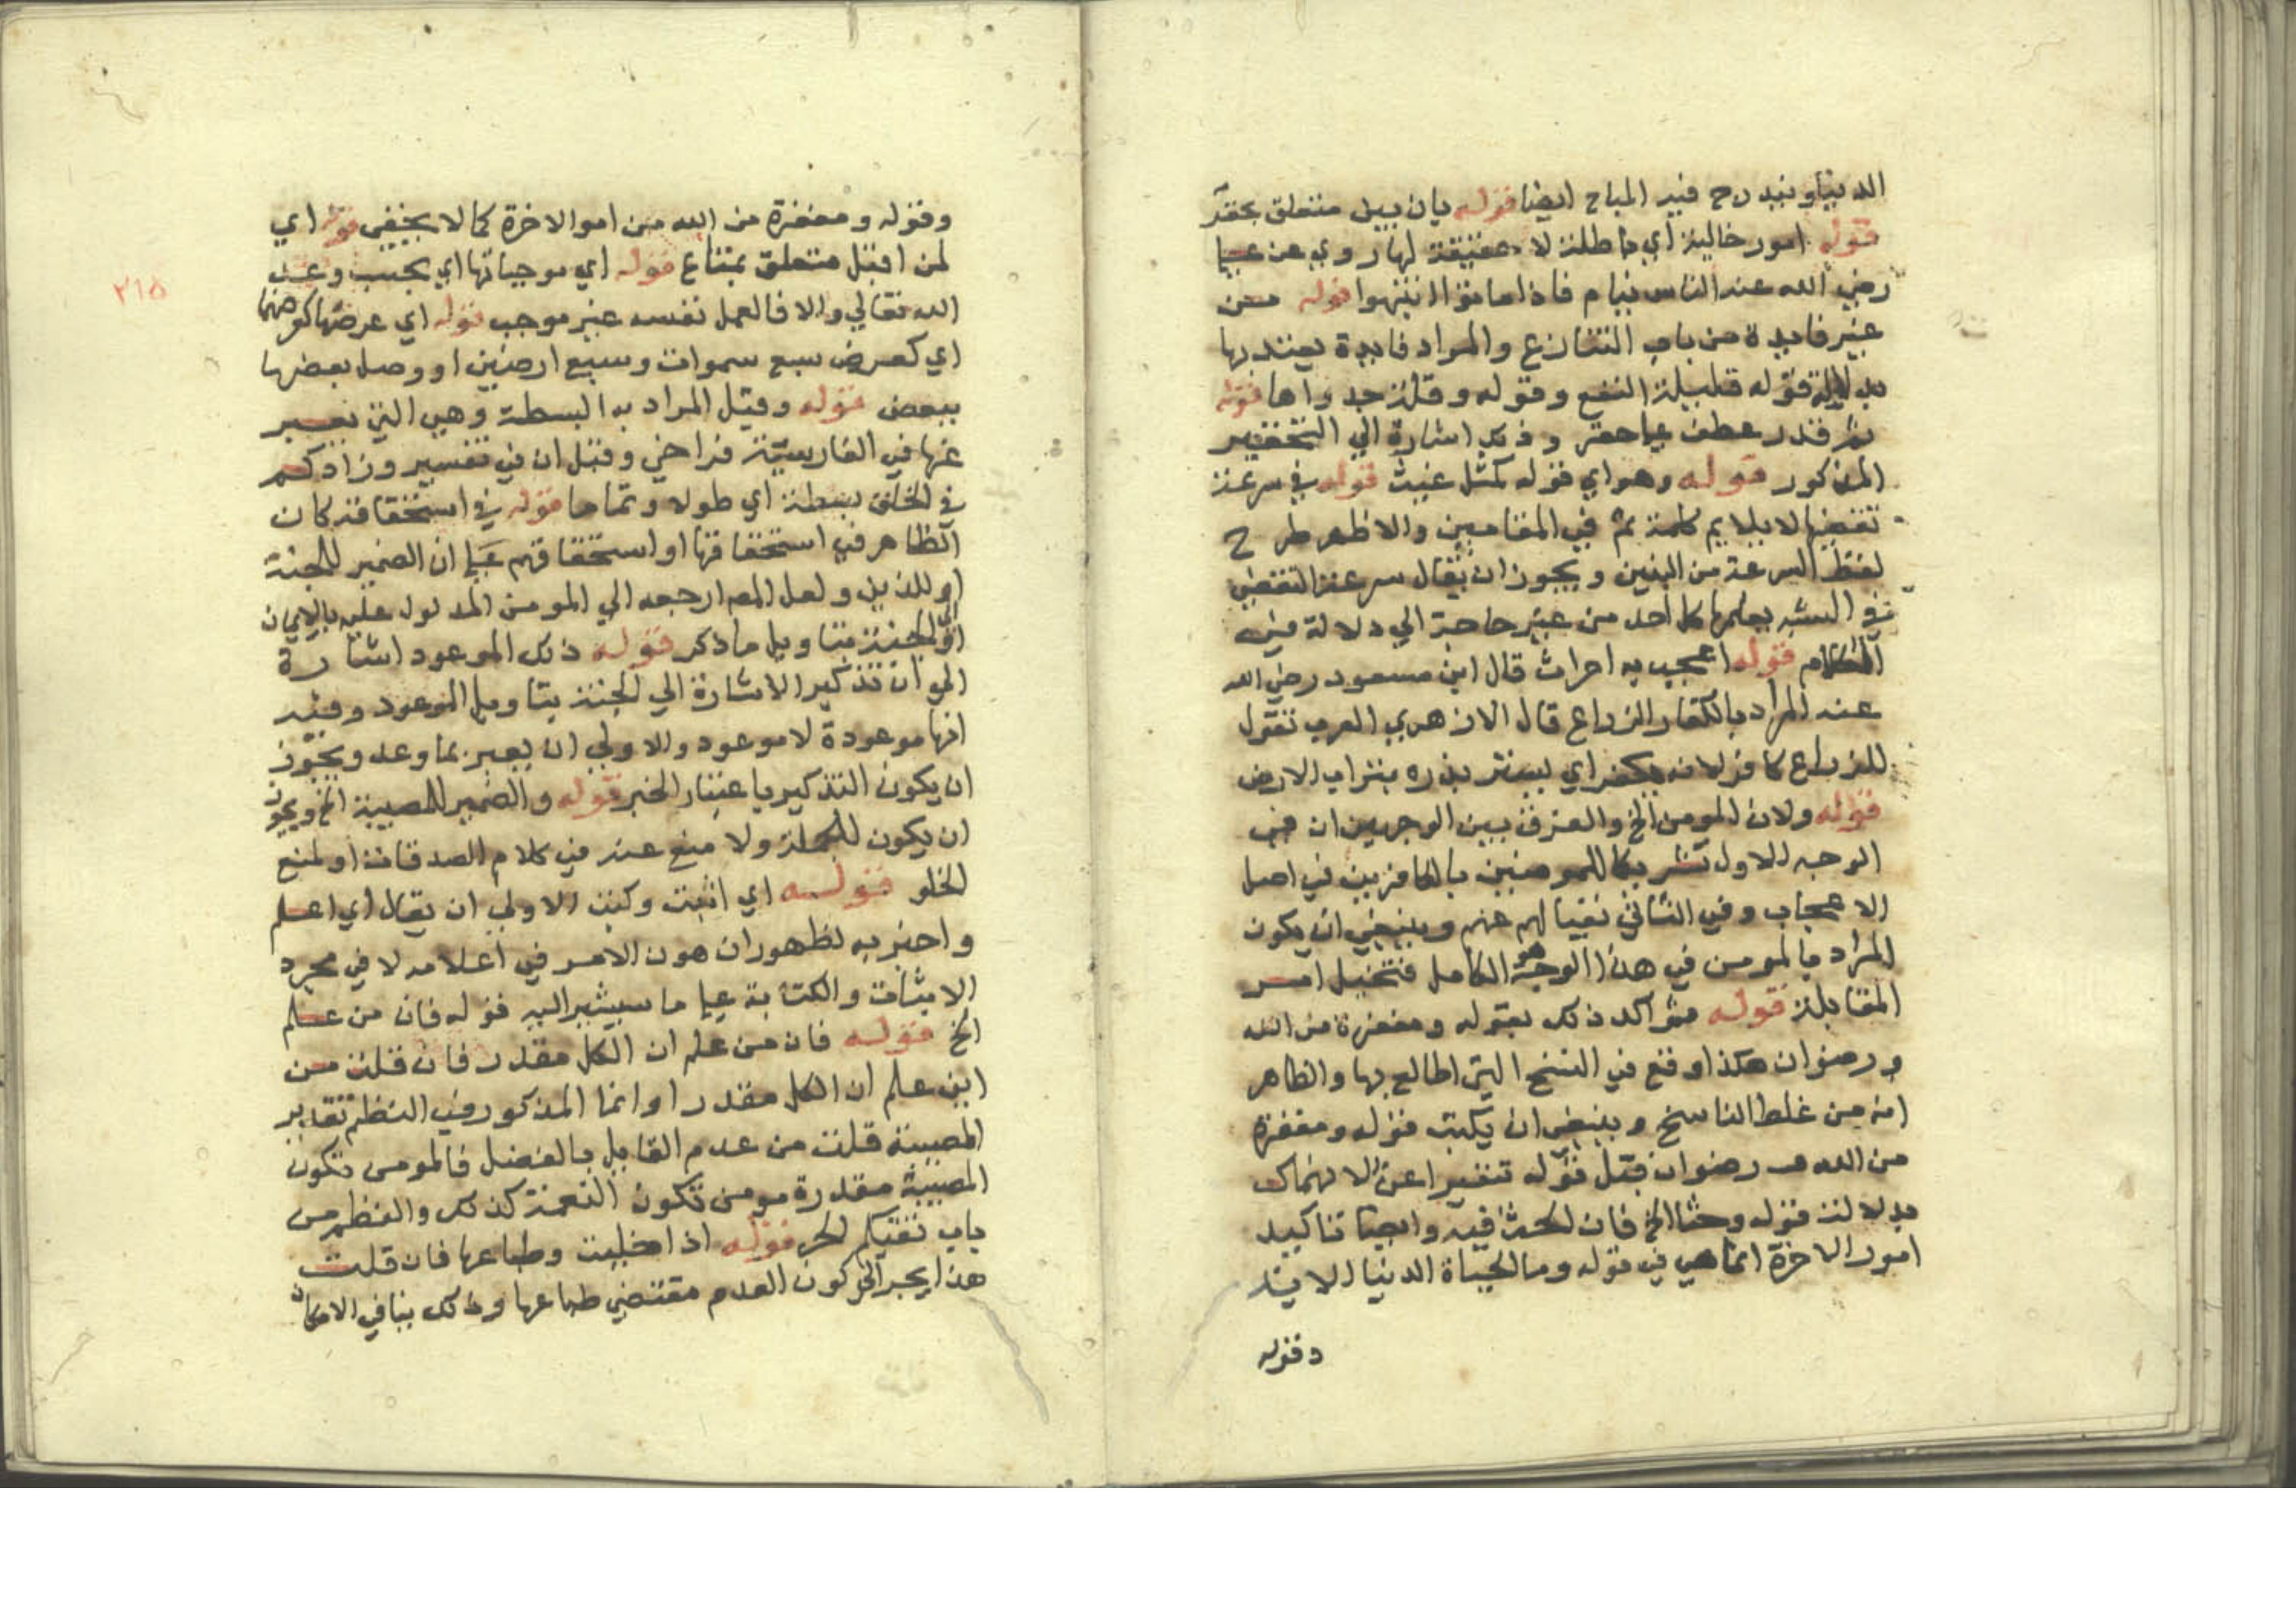 الدنيا ويندرج فيه المباح ايضا قوله بان بين متعلق بحقر
قوله امور خالية اي باطلة لا حقيقة لها روي عن علي
رضي الله عنه الناس نيام فاذا ماتوا انتبهوا قوله من
غير فايدة من باب التنازع والمراد فايدة يعتد بها
بدلالة قوله قليلة النفع وقوله وقلة جدواها قوله
ثم قدر عطف علي حقر وذلك اشارة الي التحقير
المذكور قوله وهو اي قوله كمثل غيث قوله في سرعة
تقضيها لا يلايم كلمة ثم في المقامين والاظهر طرح
لفظ السرعة من البين ويجوز ان يقال سرعة التقضي
في المشبه يعلمها كل احد من غير حاجة الي دلالة من
الكلام قوله اعجب به احراث قال ابن مسعود رضي الله
عنه المراد بالكفار الزراع قال الازهري العرب تقول
للزراع كافر لانه يكفر اي يستر بذره بتراب الارض
قوله ولان المومن الخ والفرق بين الوجهين ان في
الوجه الاول تشريكا للمومنين بالكافرين في اصل
الاعجاب وفي الثاني نفيا لهم عنه وينبغي ان يكون
المراد بالمومن في هذا الوجه هو الكامل فتختل امر
المقابلة قوله ثم اكد ذلك بقوله ومغفرة من الله
ورضوان هكذا وقع في النسخ التي اطالع بها والظاهر
انه من غلط الناسخ وينبغي ان يكتب قوله ومغفرة
من الله ورضوان قبل قوله تنفيرا عن الانهماك
بدلالة قوله وحثا الخ فان الحث فيه وايضا تاكيد
امور الاخرة انما هي في قوله وما الحياة الدنيا الاية
وقوله
وقوله ومغفرة من الله من امور الاخرة كما لا يخفي قوله اي
لمن اقبل متعلق بمتاع قوله اي موجباتها اي بحسب وعد
الله تعالي والا فالعمل نفسه غير موجب قوله اي عرضها كعرضهما
اي كعرض سبع سموات وسبع ارضين او وصل بعضها
ببعض قوله وقيل المراد به البسطة وهي التي يعبر
عنها في الفارسية فراخي وقيل ان في تفسير وزادكم
في الخلق بسطة اي طولا وتماما قوله في استحقاقه كان
الظاهر في استحقاقها او استحقاقهم علي ان الضمير للجنة
او للذين ولعل المص ارجعه الي المومن المدلول عليه بالايمان
او الي الجنة بتاويل ما ذكر قوله ذلك الموعود اشارة
الي ان تذكير الاشارة الي الجنة بتاويل الموعود وفيه
انها موعودة لا موعود والاولي ان يعبر بما وعد ويجوز
ان يكون التذكير باعتبار الخبر قوله والضمير للمصيبة الخ ويجوز
ان يكون للجملة ولا منع عنه في كلام المص فانه او لمنع
الخلو قوله اي اثبت وكتب الاولي ان يقال اي اعلم
واخبر به لظهور ان هون الامر في اعلامه لا في مجرد
الاثبات والكتابة علي ما سيشير اليه قوله فان من علم
الخ قوله فان من علم ان الكل مقدر فان قلت من
اين علم ان الكل مقدر او انما المذكور في النظم تقدير
المصيبة قلت من عدم القايل بالفصل فالمومن تكون
المصيبة مقدرة مومن تكون النعمة كذلك والنظم من
باب تقيكم الحر قوله اذا خليت وطباعها فان قلت
هذا يجر الي كون العدم مقتضي طباعها وذلك ينافي الامكان
٢١٥